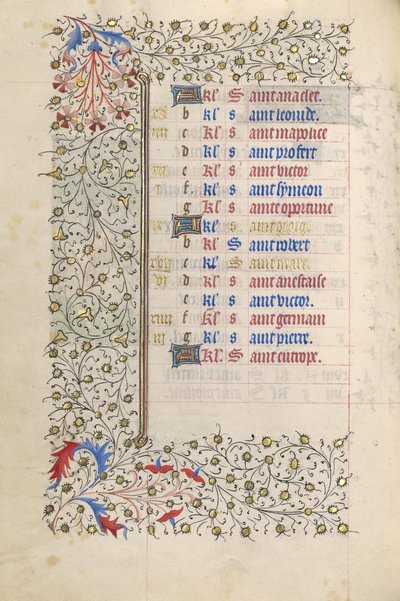 A kl S aint anaclet.
b kl s aint leonide.
c kl s aint mapolice
d kl s aint profert
e kl s aint victor
f kl s aint symeon
g kl s ainte oportune
A kl s aint george
b kl S aint robert
xvij c kl S aint marc.
vj d kl s aint anestaise
e kl s aint victor.
xiiij f kl s aint germain
iij g kl s aint pierre.
A kl. S aint eutrope.